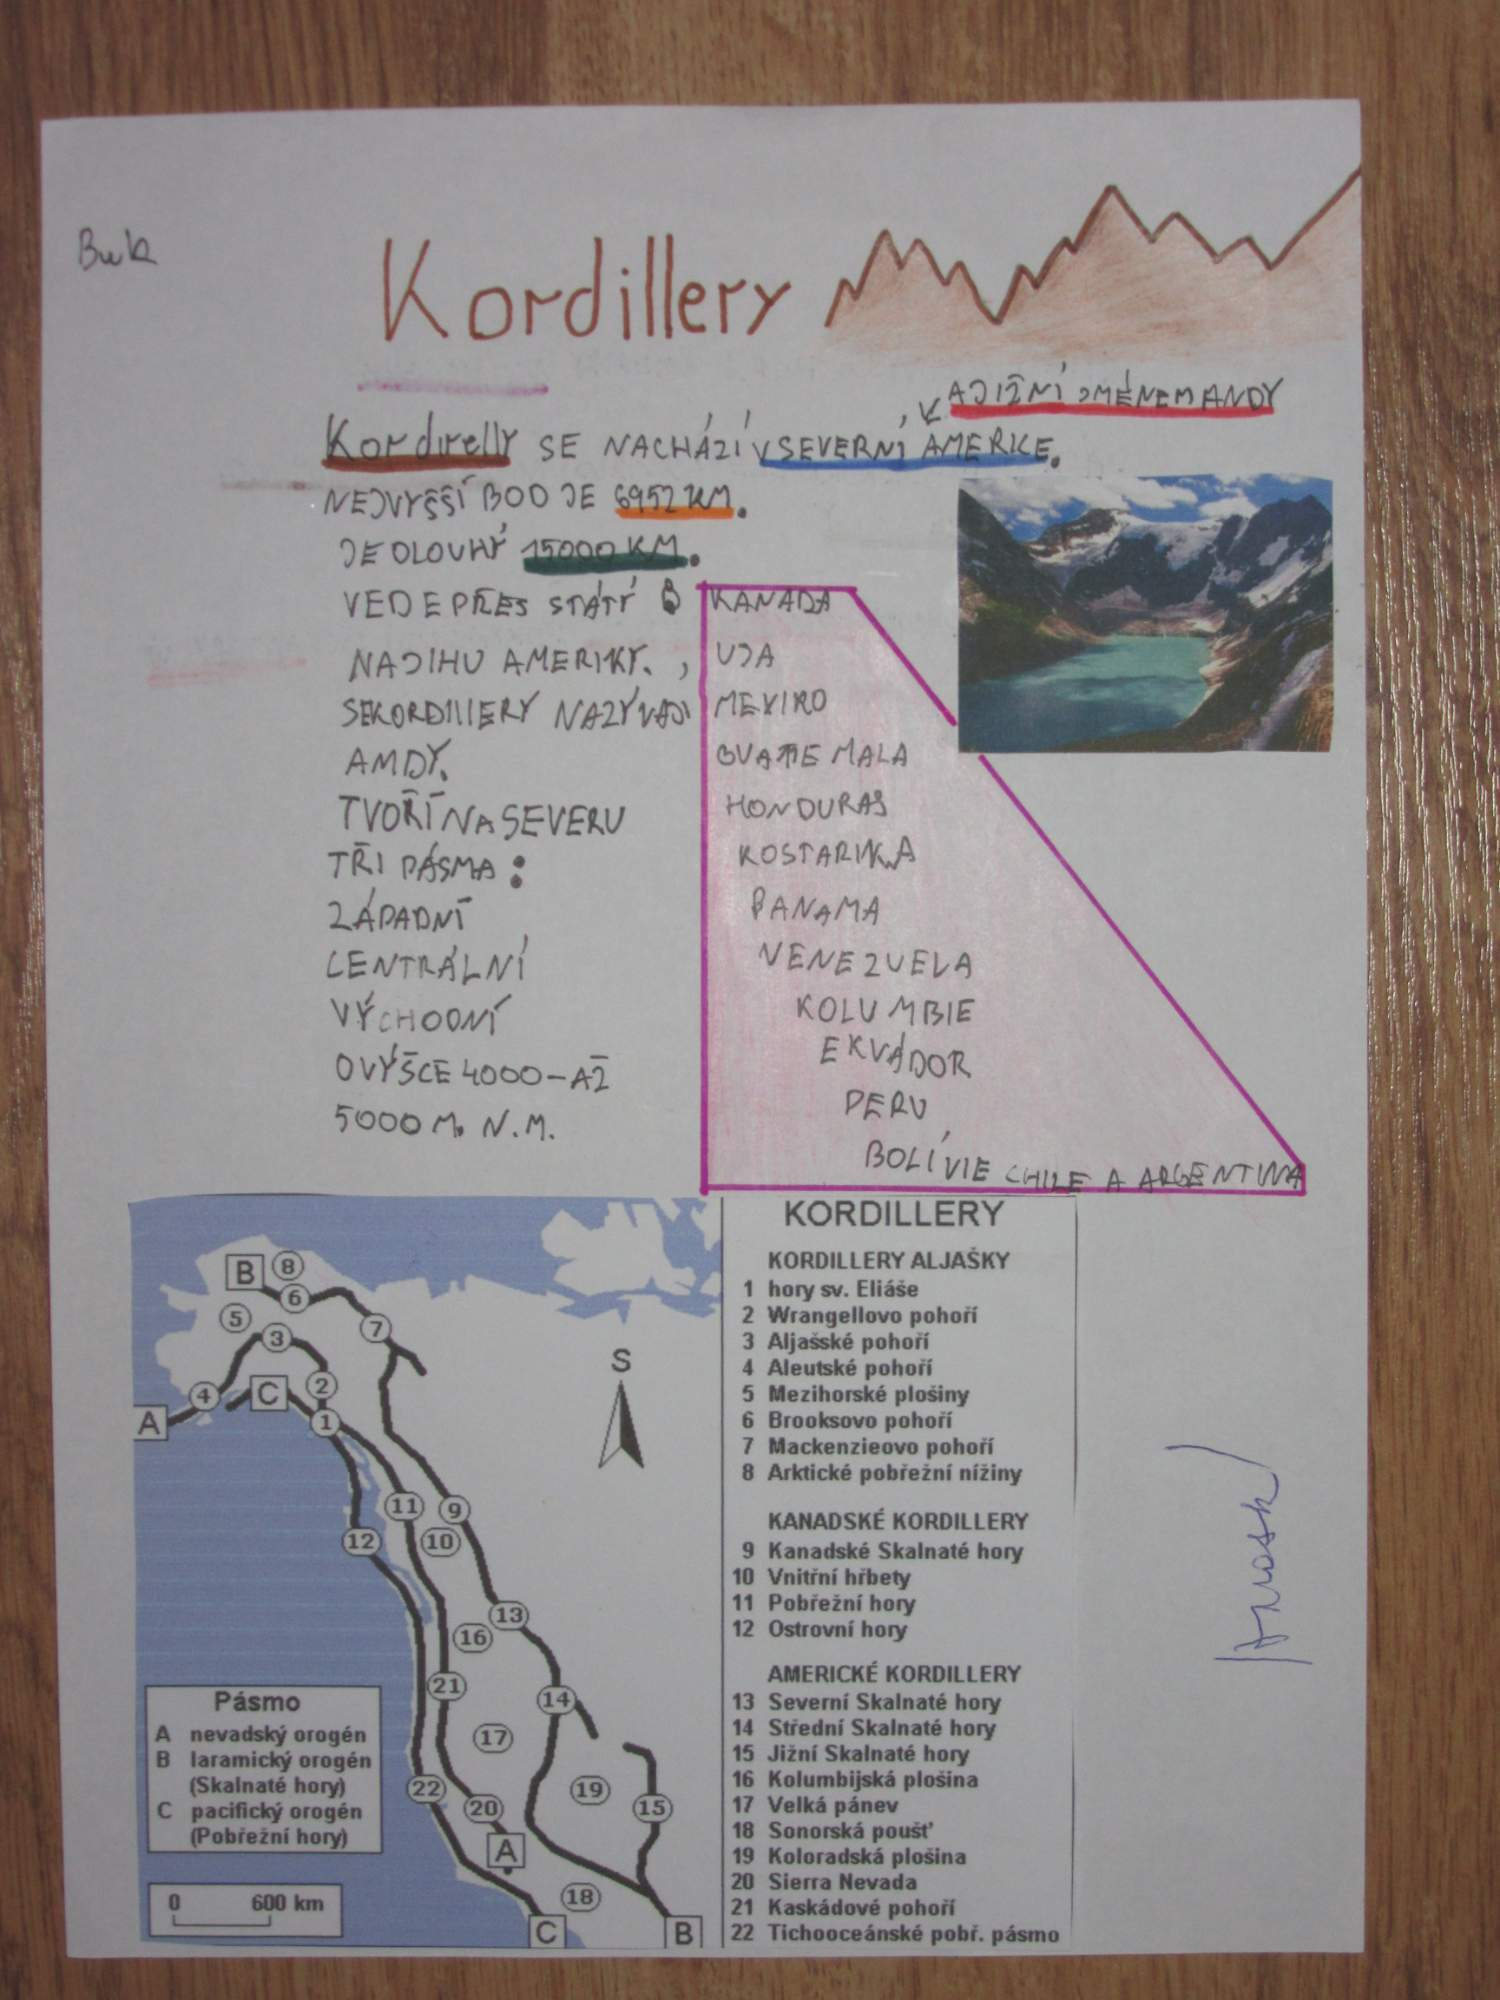 Buk
Kordillery
A JIŽNÍ JMÉNEM ANDY
Kordirelly SE NACHÁZÍ V SEVERNÍ AMERICE.
NEJVYŠŠÍ BOD JE 6952 KM.
JE DLOUHÝ 15000 KM.
VEDE PŘES STÁTY
NA JIHU AMERIKY.,
SE KORDILLERY NAZÝVAJI
AMDY.
TVOŘÍ NA SEVERU
TŘI PÁSMA:
ZÁPADNÍ
CENTRÁLNÍ
VÝCHODNÍ
O VÝŠCE 4000-AŽ
5000 M. N.M.
KANADA
UJA
MEXIKO
GUATEMALA
HONDURAS
KOSTARIKA
PANAMA
VENEZUELA
KOLUMBIE
EKVÁDOR
PERU
BOLÍVIE CHILE A ARGENTINA
B
8
6
5
3
7
4
C
2
A
1
S
11
9
12
10
13
16
21
14
17
22
19
20
15
A
18
C
B
Pásmo
A nevadský orogén
B laramický orogén
(Skalnaté hory)
C pacifický orogén
(Pobřežní hory)
0 600 km
KORDILLERY
KORDILLERY ALJAŠKY
1 hory sv. Eliáše
2 Wrangellovo pohoří
3 Aljašské pohoří
4 Aleutské pohoří
5 Mezihorské plošiny
6 Brooksovo pohoří
7 Mackenzieovo pohoří
8 Arktické pobřežní nížiny
KANADSKÉ KORDILLERY
9 Kanadské Skalnaté hory
10 Vnitřní hřbety
11 Pobřežní hory
12 Ostrovní hory
AMERICKÉ KORDILLERY
13 Severní Skalnaté hory
14 Střední Skalnaté hory
15 Jižní Skalnaté hory
16 Kolumbijská plošina
17 Velká pánev
18 Sonorská poušť
19 Koloradská plošina
20 Sierra Nevada
21 Kaskádové pohoří
22 Tichooceánské pobř. pásmo